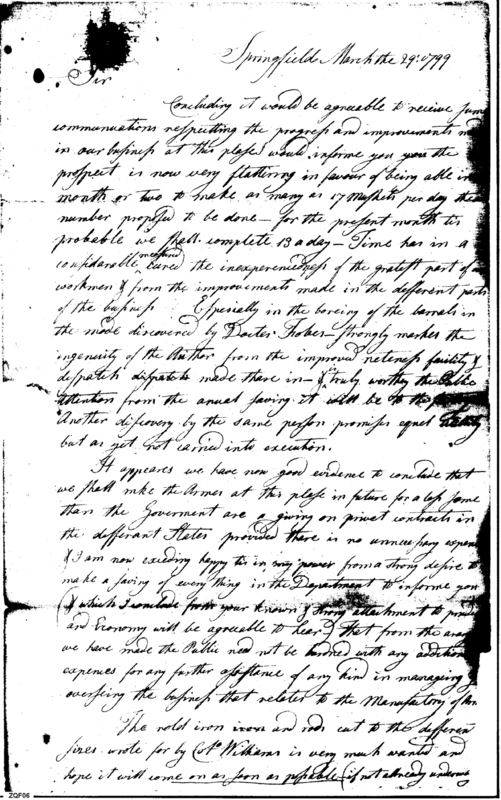 Springfield March the 29th. 1799
Sir
Concluding it would be agreuable to receive some
communications respectting the progress and improvements
in our business at this plase would informe you the
prospect is now very flattering in favour of being able in
month or two to make as many as 17 Muskets per day the
number proposed to be done — for the present month tis
probable we shall complete 13 a day — Time has in a
considarable cured the inexperiencedness of the gratest part of
workmen & from the improvements made in the defferent parts
of the business Espesially in the boreing of the barrals in
the mode discovered by Docter Fobes — strongly markes the
ingenuity of the Author from the improved neteness facility &
despatch made there in — & truly worthy the Public
Attention from the anual saving it will be to the
Another discovery by the same person promises equel
but as yet not carried into execution.
It appears we have now good evidence to conclude that
we shall mke the Armes at this plase in future for a less some
than the Goverment are a giving on privet contracts in
the differant States provided there is no unnecessary expens
& I am now exceding happy tis in my power from a strong desire to
make a saving of every thing in the Department to informe you
(& which I conclude from your known & strong attachment to
and Economy will be agreable to hear) that from the
we have made the Public need not be burdned with any additional
expences for any further assistence of any kind in managing &
overseeing the business that relates to the Manufactory of
The rold iron and rods cut to the different
sizes wrote for by Williams is very much wanted and
hope it will come on as soon as possable (if not allready underway
ZQF06